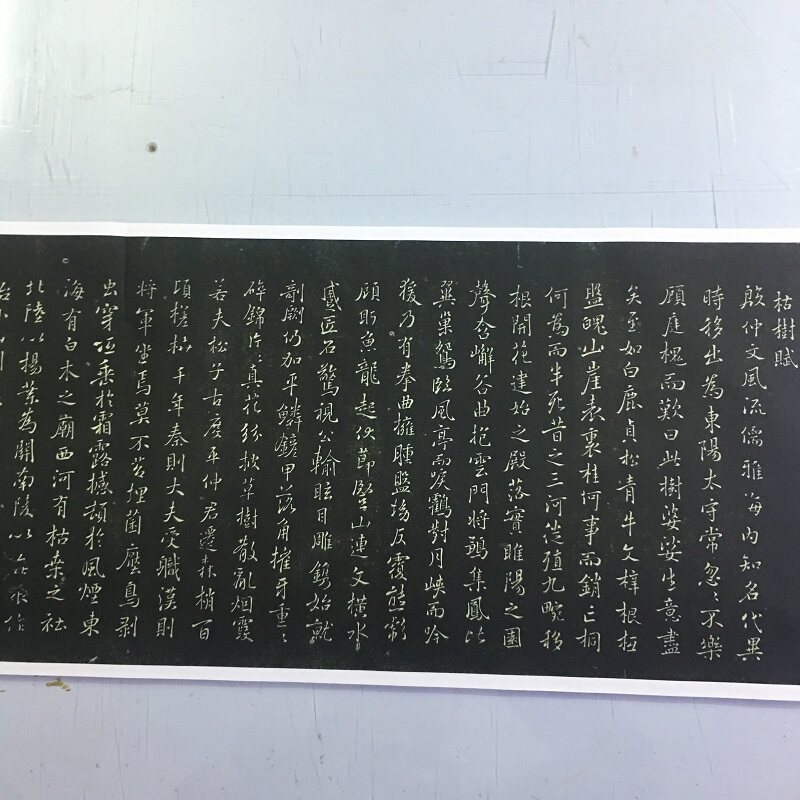 枯樹賦
殷仲文風流儒雅海內知名代異
時移出為東陽太守常忽〻不樂
顧庭槐而歎曰此樹婆娑生意盡
矣至如白鹿貞松青牛文梓根柢
盤魄山崖表裏桂何事而銷亡桐
何為而半死昔之三河徙殖九畹移
根開花建始之殿落實睢陽之園
聲含嶰谷曲抱雲門將鶵集鳳比
翼巢鴛臨風亭而唳鶴對月峽而吟
猨乃有拳曲擁腫盤坳反覆熊彪
顧盼魚龍起伏節豎山連文橫水
蹙匠石驚視公輸眩目雕鐫始就
剞劂仍加平鱗鏟甲落角摧牙重〻
碎錦片〻真花紛披草樹散亂烟霞
若夫松子古度平仲君遷森梢百
頃槎枿千年秦則大夫受職漢則
將軍坐焉莫不苔埋菌壓鳥剥
虫穿低垂於霜露撼頓於風煙東
海有白木之廟西河有枯桑之社
北陸以楊葉為關南陵以梅根作